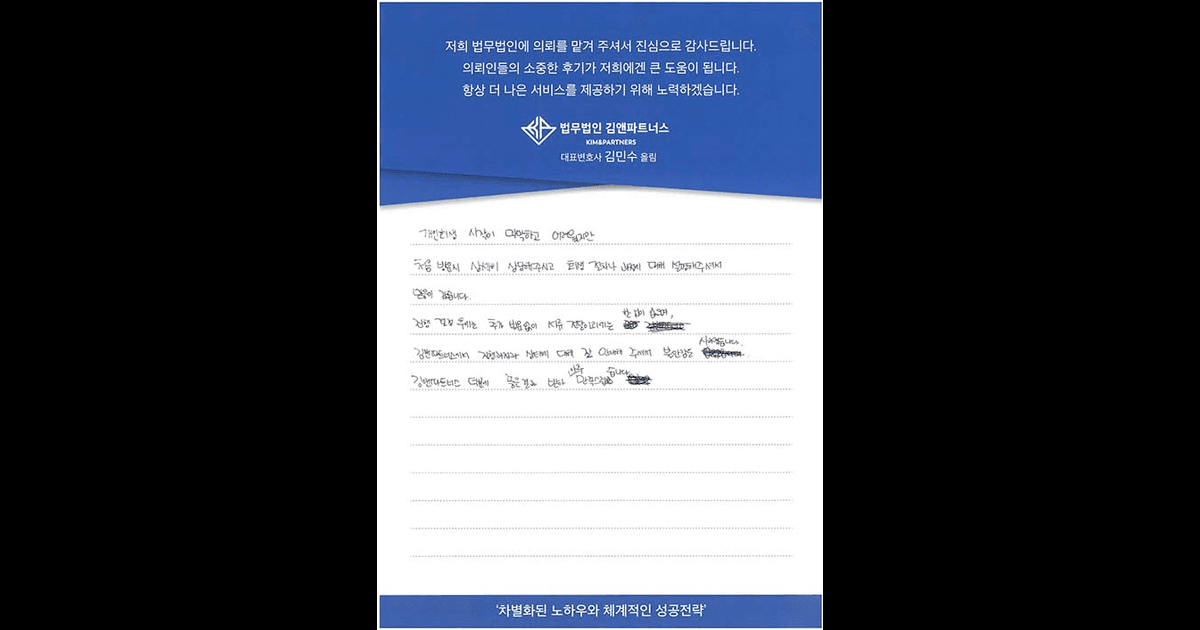 저희 법무법인에 의뢰를 맡겨 주셔서 진심으로 감사드립니다.
의뢰인들의 소중한 후기가 저희에겐 큰 도움이 됩니다.
항상 더 나은 서비스를 제공하기 위해 노력하겠습니다.
법무법인 김앤파트너스
KIM&PARTNERS
대표변호사 김민수 올림
개인회생 시작이 막막하고 어려웠지만
처음 방문시 상세히 상담해주시고 대해 설명해주셔서
믿음이 갔습니다.
진행 추가 비용없이 서류
김앤파트너스에서 진행과정과 상태에 대해 잘 안내해 주셔서 불안감도 사라졌습니다.
김앤파트너스 덕분에 좋은결과 받아 아주 만족스럽습니다.
'차별화된 노하우와 체계적인 성공전략'